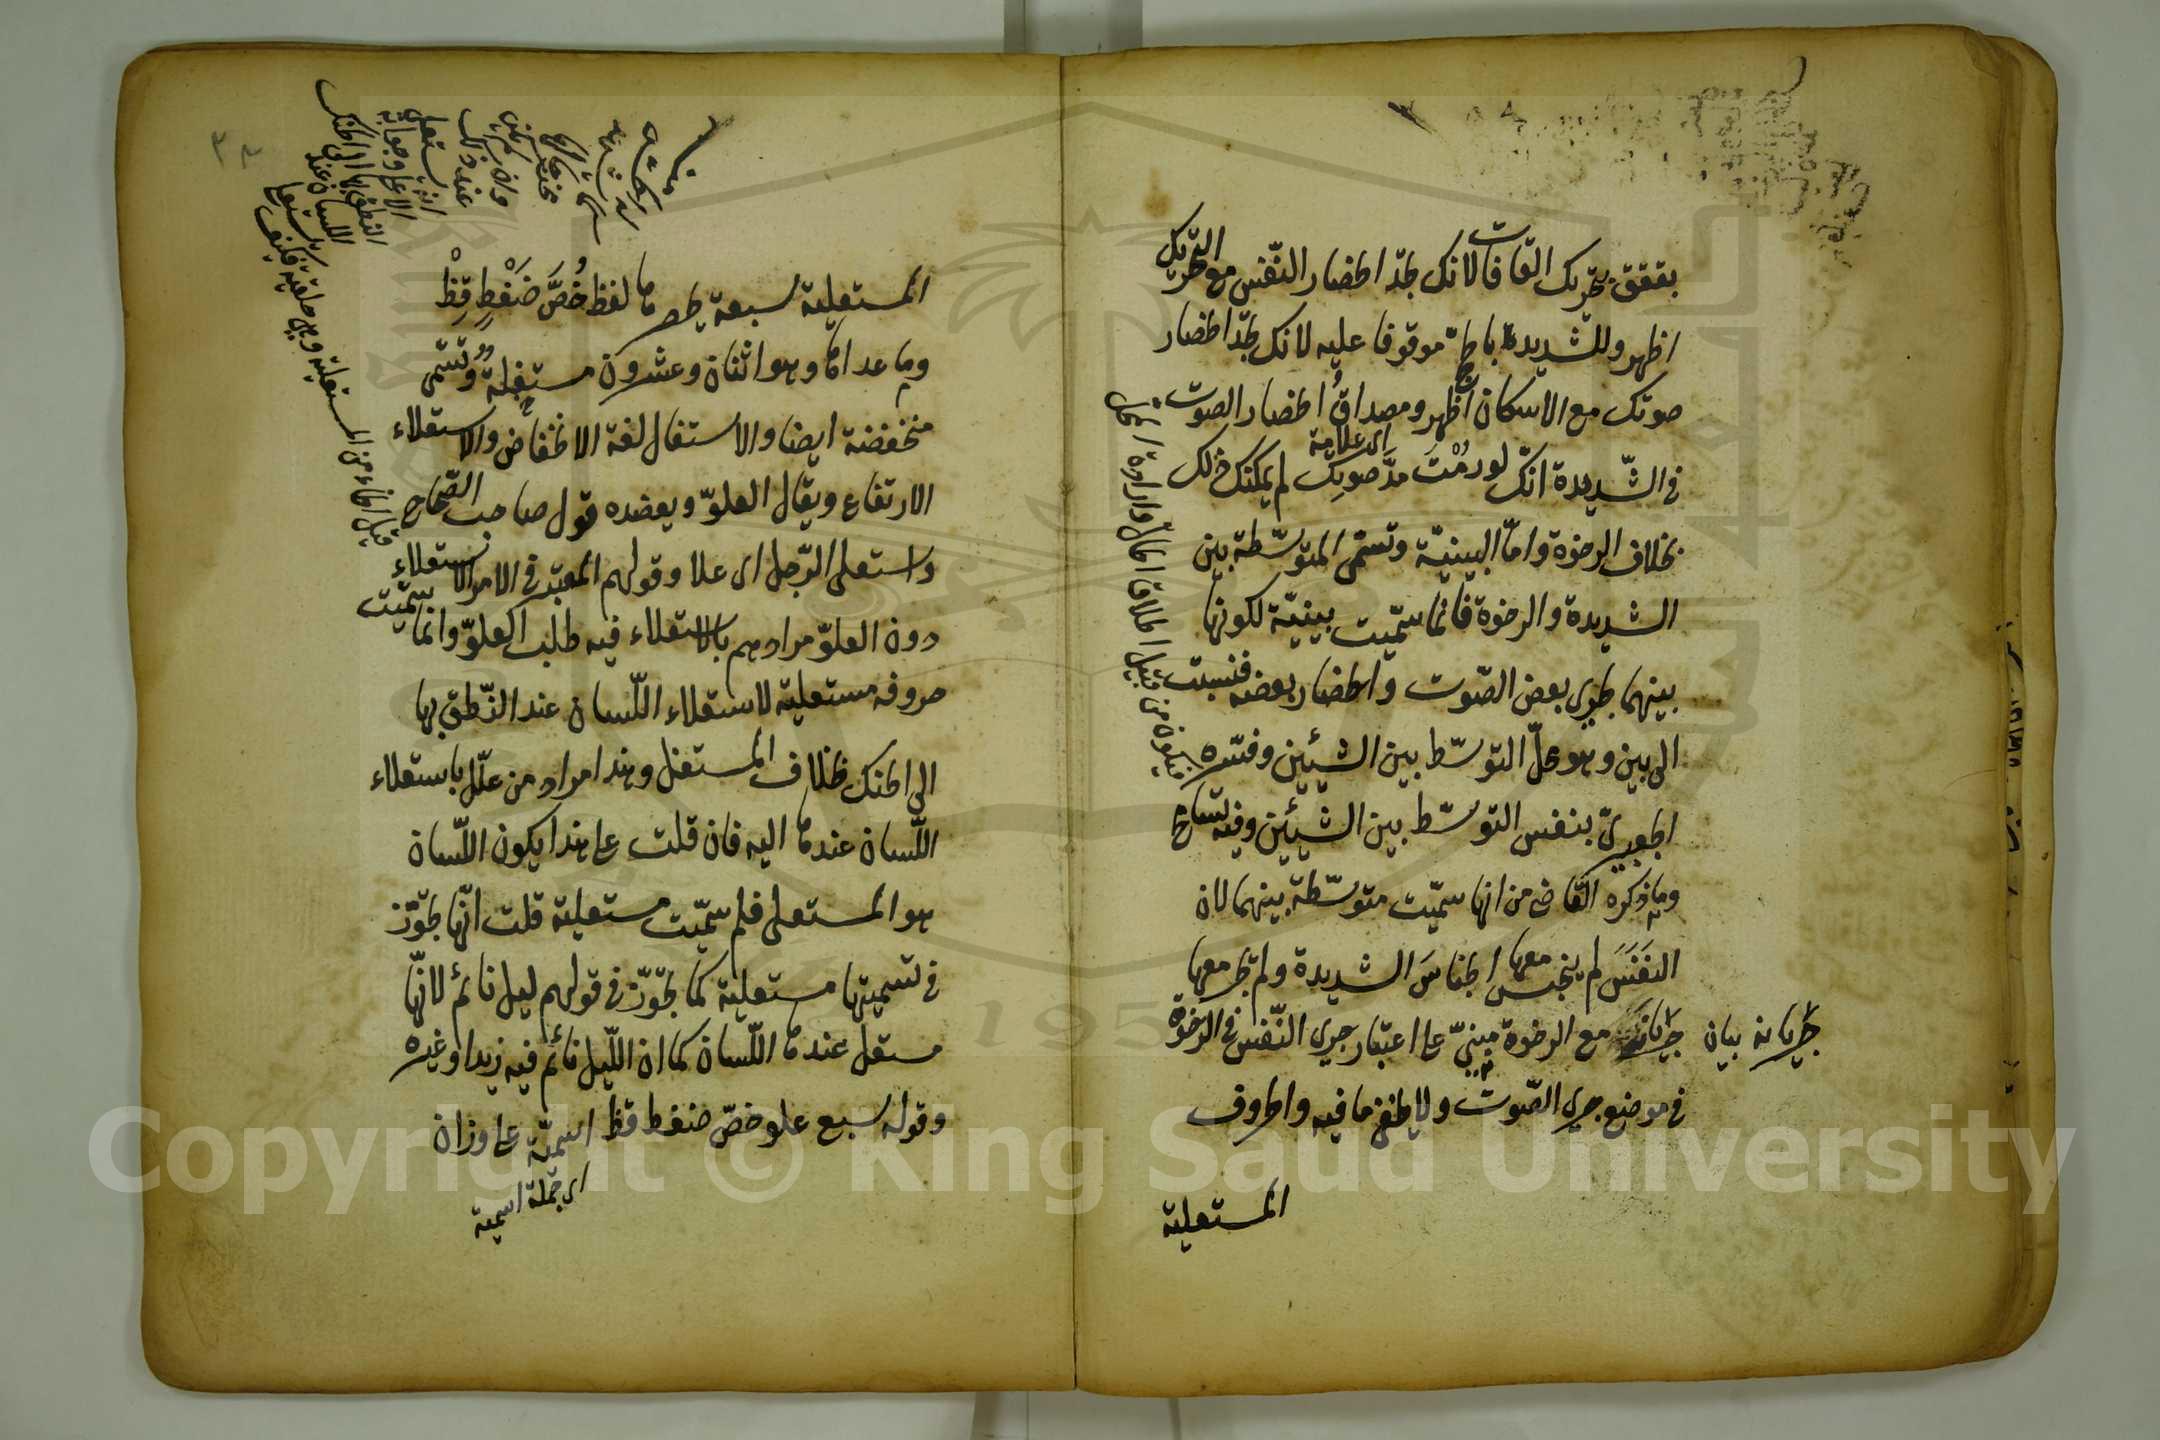 بققق بتحريك القافات لانك تجد انحصار النّفس مع التحريك
اظهر وللشديدة باحج موقوفا عليه لانك تجد انحصار
صوتك مع الاسكان اظهر ومصداقُ انحصار الصوت
اى علامة
فى الشّديدة انّك لو رُمْتَ مدَّ صوتِك لم يمكنك ذلك
بخلاف الرخوة وامّا البينيّة وتسمّى المتوسّطة بين
الشديدة والرخوة فانما سمّيت بينيّة لكونها
بينهما بجرى بعض الصّوت وانحصار بعضه فنسبت
الى بين وهو محلّ التوسّط بين الشيئين وفسّره
الجعبرىّ بنفس التوسّط بين الشيئين وفيه تسامح
وما ذكره القاضى من انها سمّيت متوسّطة بينهما لان
النفَسَ لم ينحبس معها انحباسَ الشديدة ولم يجر معها
جريانه مع الرخوة مبنىّ على اعتبار جرى النّفس فى الرخوة
جريانه بيان
فى موضع جرى الصّوت ولا يخفى ما فيه والحروف
المستعلية
المستعلية سبعة يحصرها لفظ خُصَّ ضَغْطٍ قِظْ
وما عداها وهو اثنان وعشرون مستفلةٌ وتسمّى
منخفضة ايضا والاستفال لغة الانخفاض والاستعلاء
الارتفاع ويقال العلوّ ويعضده قول صاحب الصّحاح
واستعلى الرّجل اى علا وقولهم المعتبر فى الامر الاستعلاء
دون العلوّ مرادهم بالاستعلاء فيه طلب العلوّ وانما سمّيت
حروفه مستعلية لاستعلاء اللّسان عند النّطق بها
الى الحنك بخلاف المستفل وهذا مراد من علّل باستعلاء
اللّسان عندها اليه فان قلت على هذا يكون اللّسان
هو المستعلى فلم سمّيت مستعلية قلت انّها تجوّز
فى تسميتها مستعلية كما تجوّز فى قولهم ليل نائم لانّها
مستعل عندها اللّسان كما ان اللّيل نائم فيه زيد اوغيره
وقوله سبع علو خصّ ضغط قظ اسميّة على وزان
اى جملة اسمية